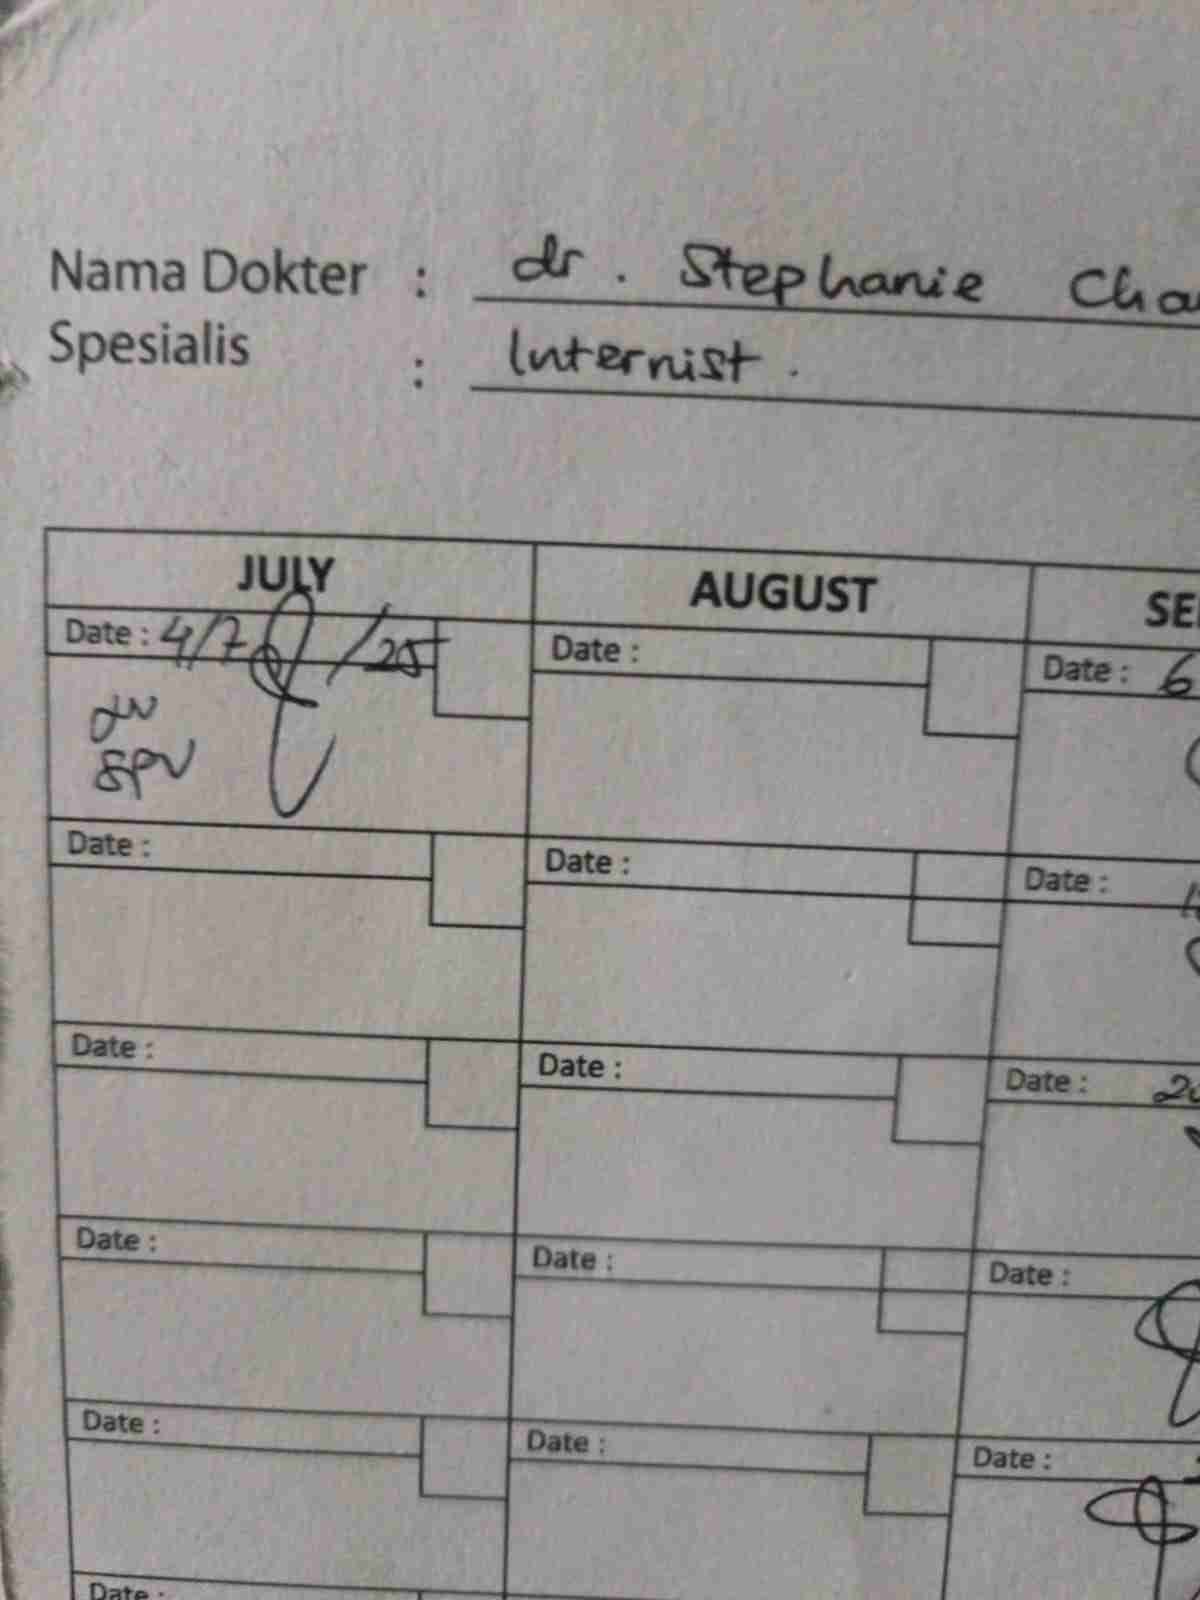 Nama Dokter : dr. Stephanie
Spesialis : Internist.
JULY AUGUST
Date : 4/7/25 Date : Date : 6
SPV
Date : Date : Date :
Date : Date : Date :
Date : Date : Date :
Date : Date : Date :
Date :